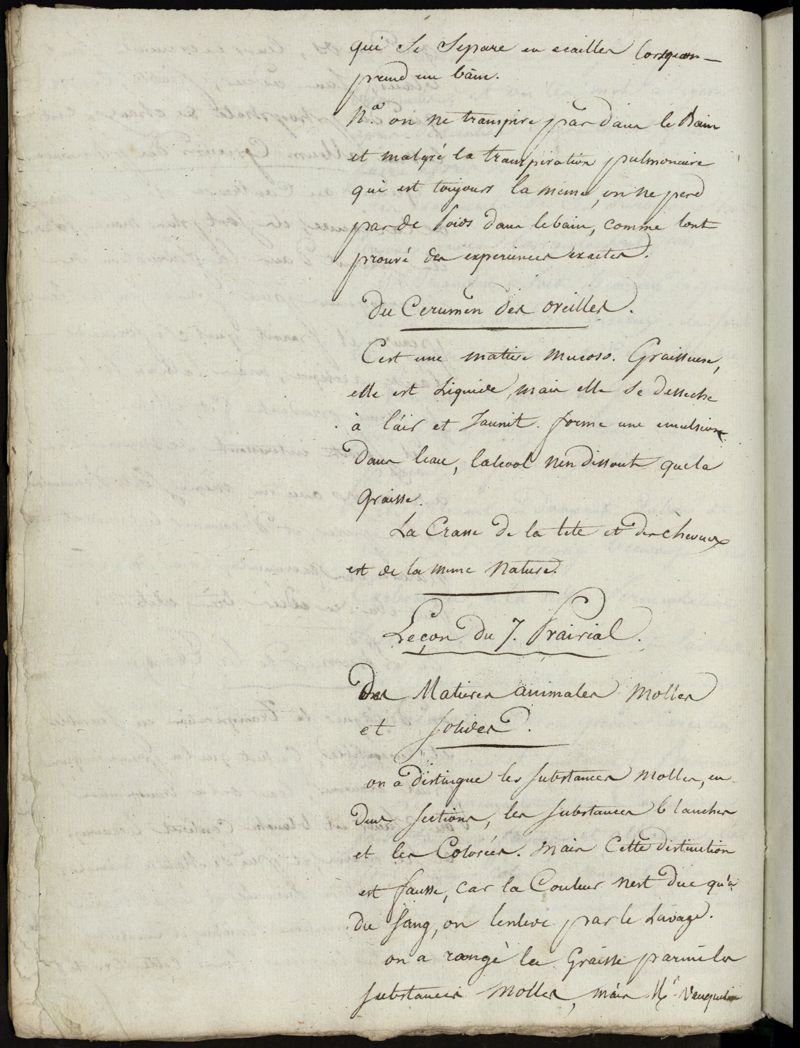 qui se separe en ecailles lorsquon
prend un bain.
Nᵃ. on ne transpire par dans le Bain
et malgré la transpiration pulmonaire
qui est toujours la meme, on ne perd
par de poids dans le bain, comme lont
prouvé des experiences exactes.
Du Cerumen des oreilles.
Cest une matiere mucoso. Graisseuse,
elle est Liquide, mais elle se desseche
à l'air et Jaunit. forme une emulsion
dans leau, lalcool n'en dissout que la
graisse.
La Crasse de la tete et des cheveux
est de la meme Nature.
Leçon du 7. Prairial.
Des Matieres animales Molles
et solides.
on a distingue les substances Molles, en
deux sections, les substances blanches
et les Colorées. mais Cette distinction
est fausse, car la Couleur nest due qu'a
du sang, on lenleve par le Lavage.
on a rangé la Graisse parmi les
substances Molles, mais Mʳ. Vauquelin